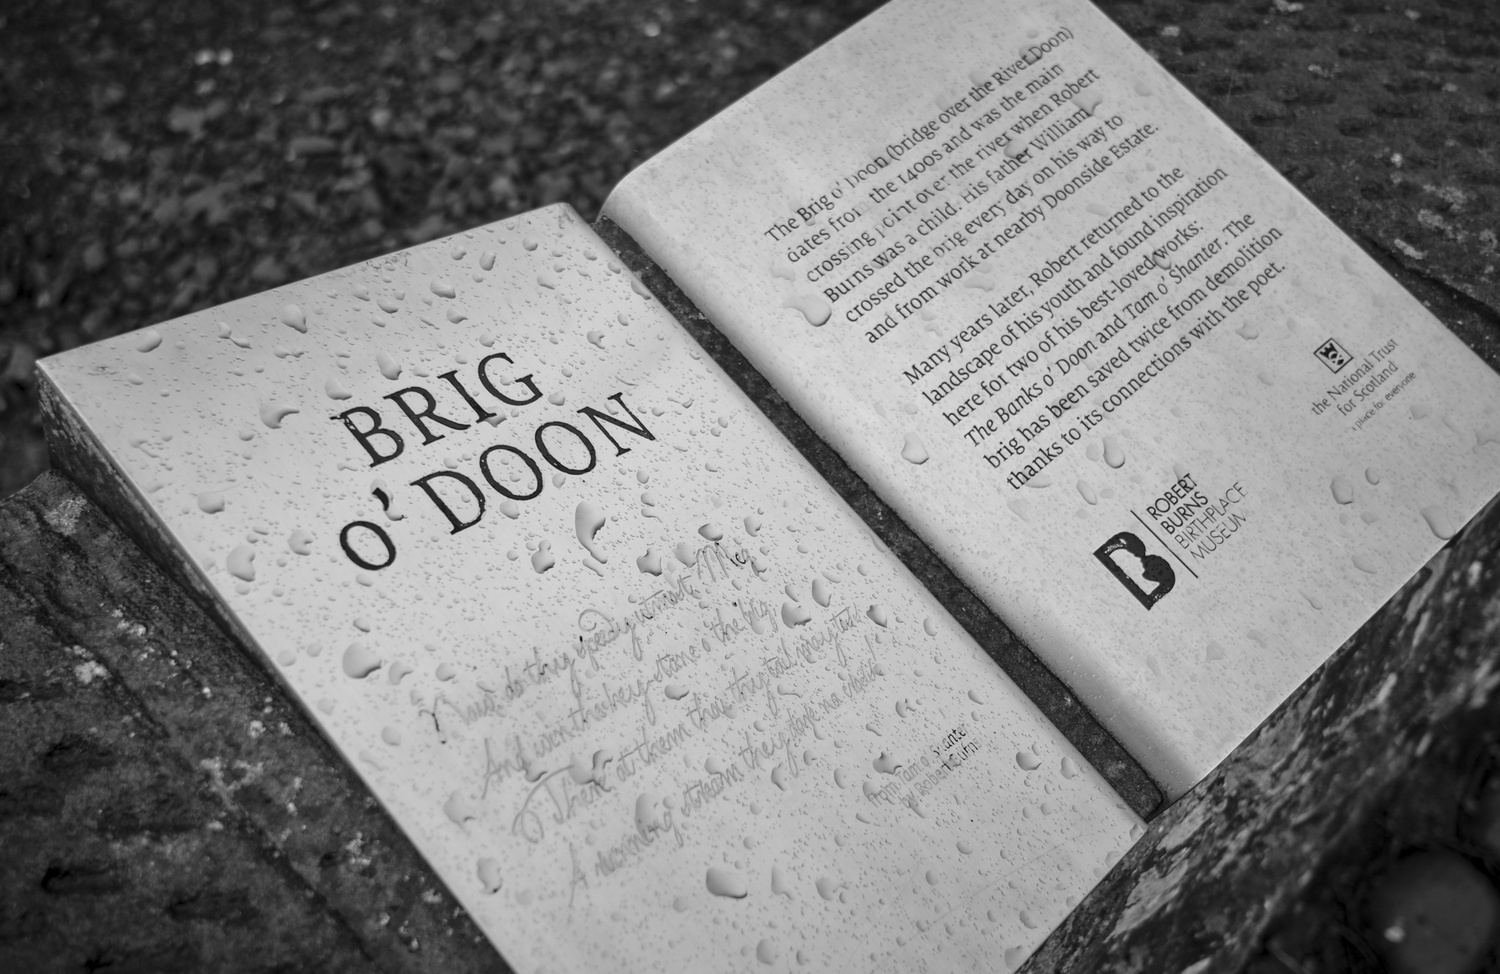 BRIG
O' DOON
Now, do thy speedy utmost, Meg
And win the key-stane o' the brig
There at them thou thy tail may toss
A running stream they dare na cross
from Tam o' Shanter
by Robert Burns
The Brig o' Doon (bridge over the River Doon)
dates from the 1400s and was the main
crossing point over the river when Robert
Burns was a child. His father William
crossed the brig every day on his way to
and from work at nearby Doonside Estate.
Many years later, Robert returned to the
landscape of his youth and found inspiration
here for two of his best-loved works:
The Banks o' Doon and Tam o' Shanter. The
brig has been saved twice from demolition
thanks to its connections with the poet.
the National Trust
for Scotland
a place for everyone
B
ROBERT
BURNS
BIRTHPLACE
MUSEUM